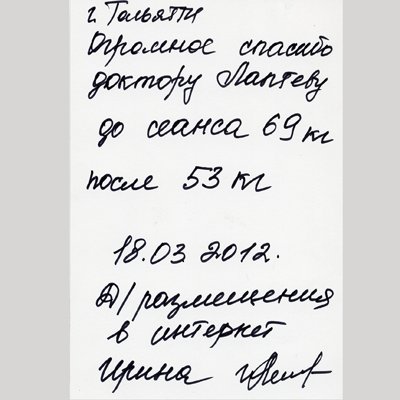 г. Тольятти
Огромное спасибо
доктору Лаптеву
до сеанса 69 кг
после 53 кг
18.03 2012.
Д/размещения
в интернет
Ирина